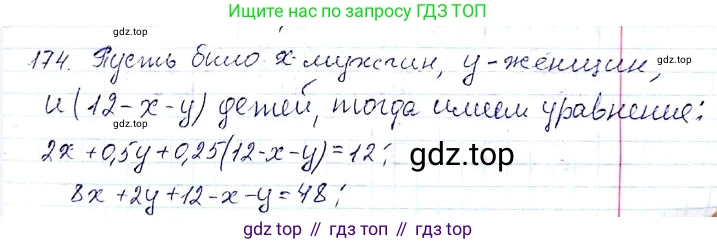 Ищите нас по запросу ГДЗ ТОП
174. Пусть было x мужчин, y - женщин,
и (12-x-y) детей, тогда имеем уравнение:
2x+0,5y+0,25(12-x-y)=12;
8x+2y+12-x-y=48;
gdz.top
gdz.top
gdz.top
gdz.top
gdz.top
gdz.top // гдз.топ // gdz.top // гдз.топ